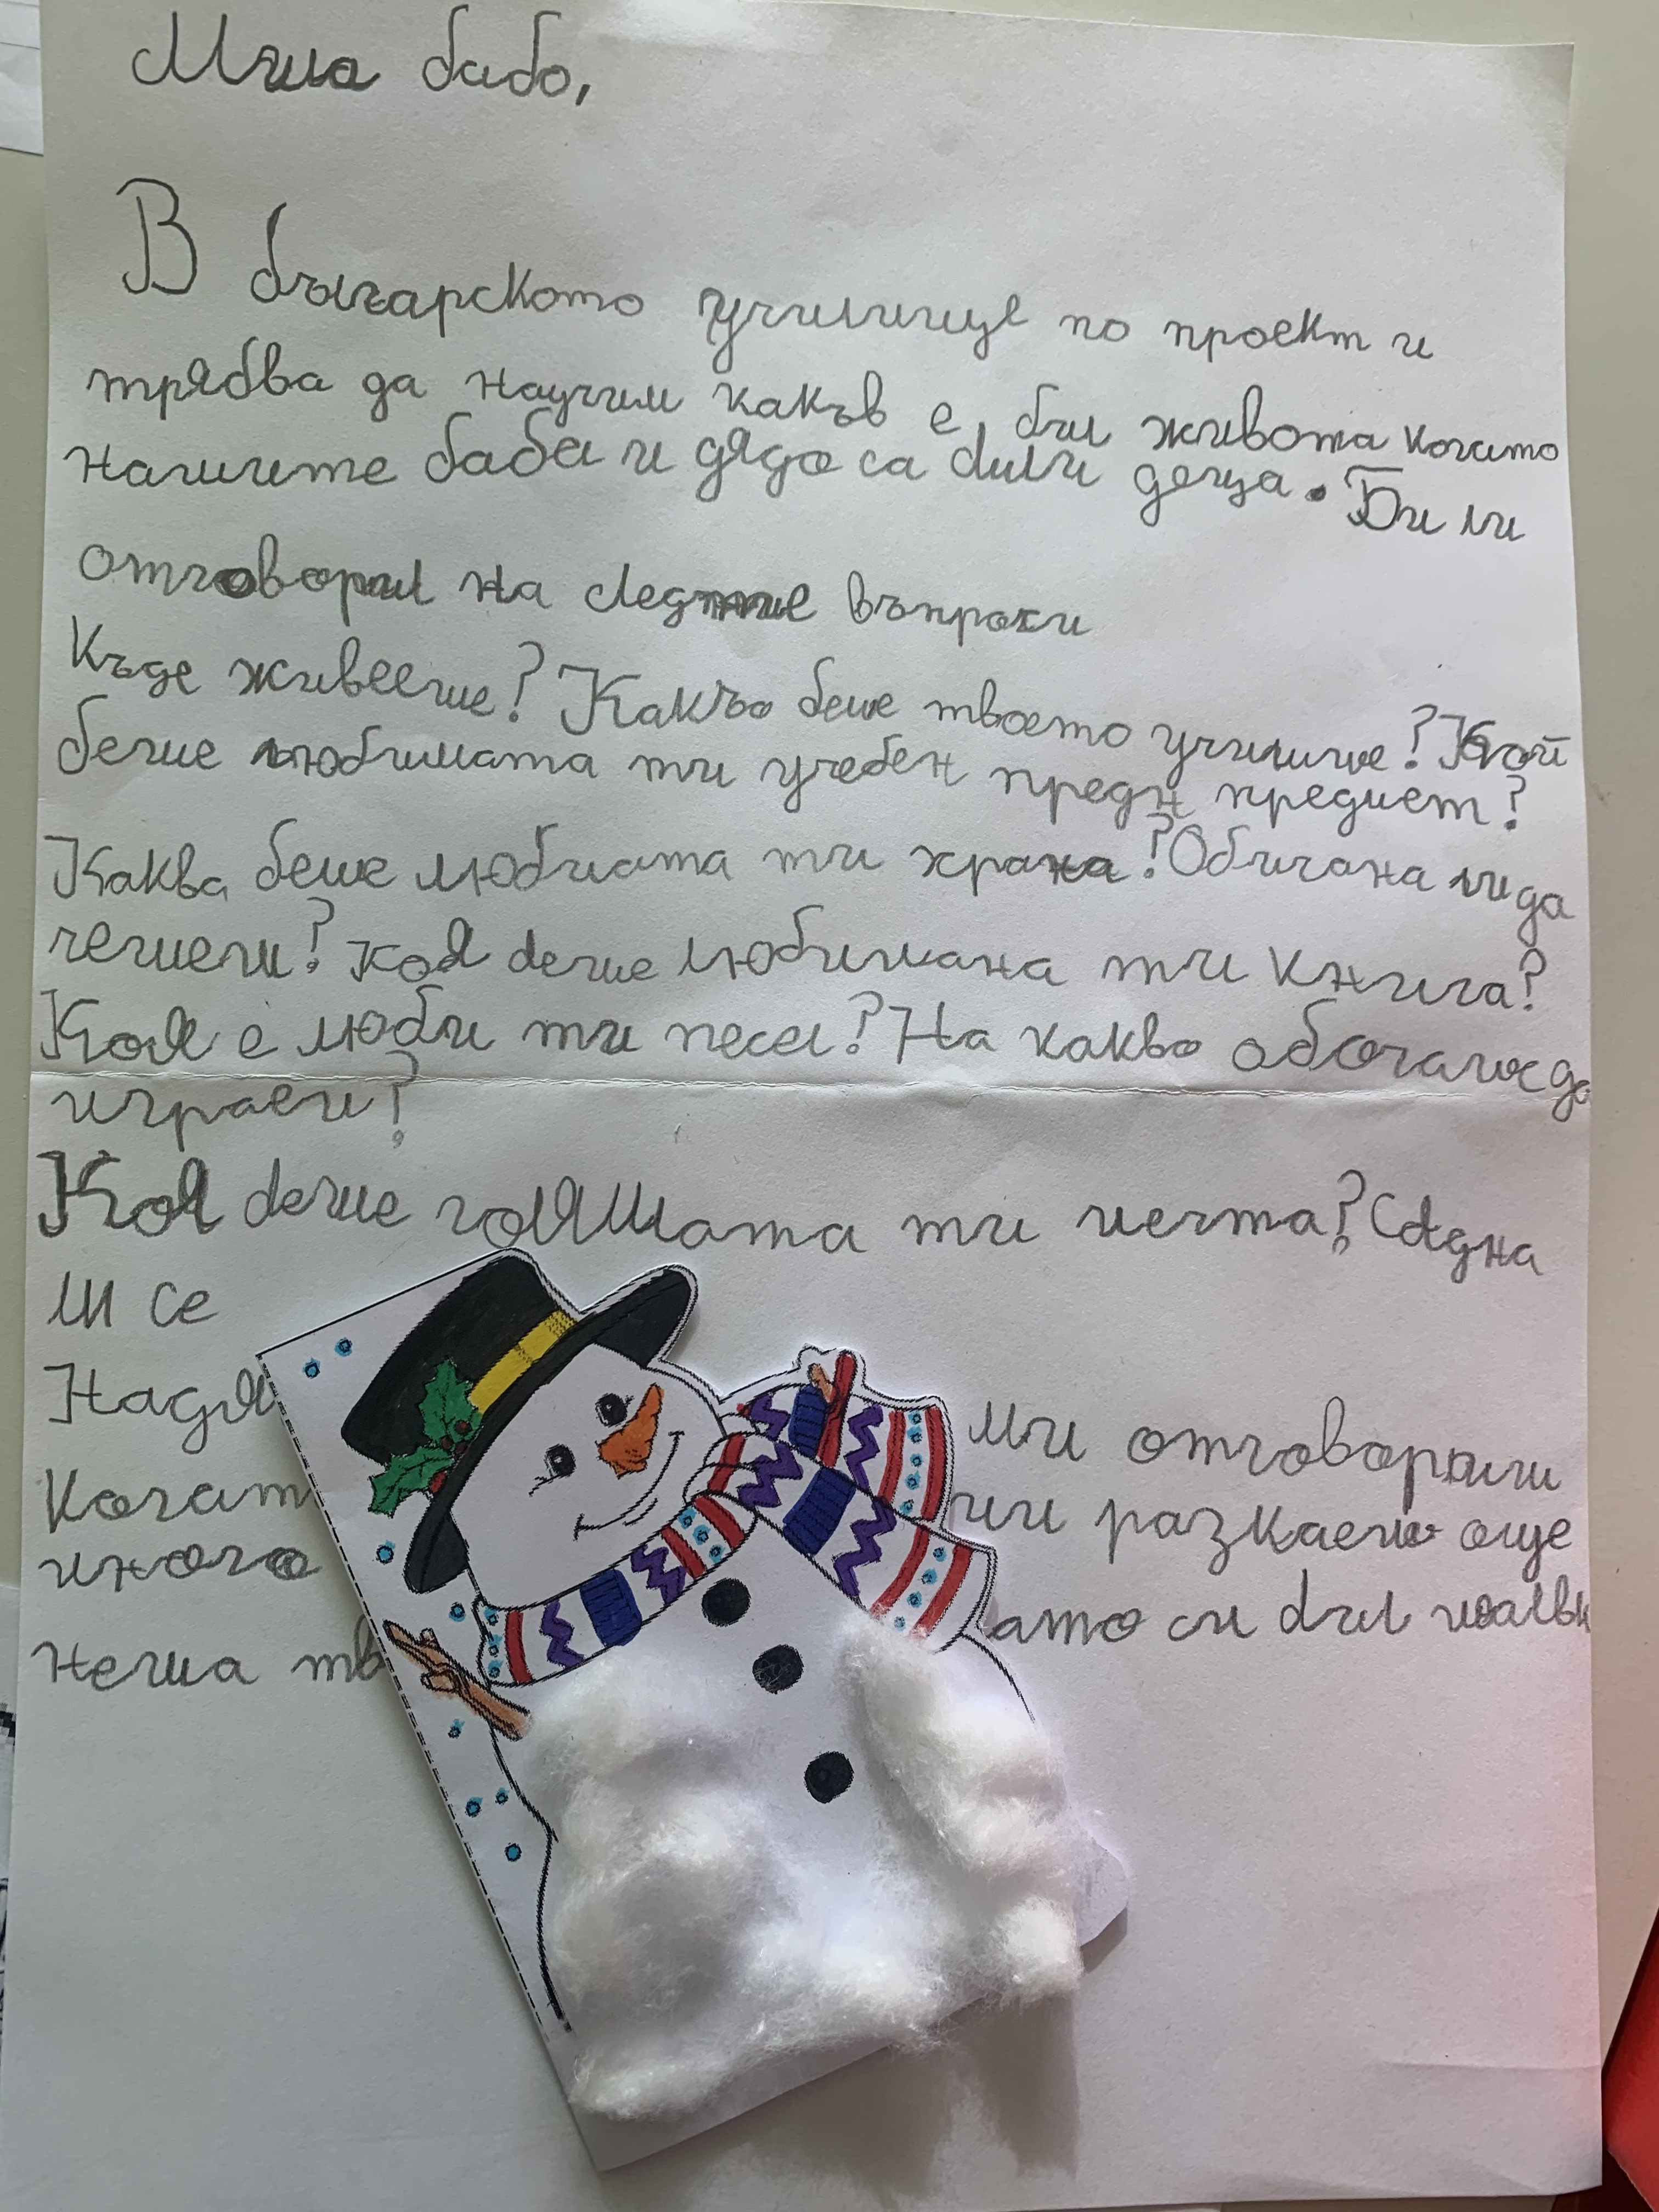 Мила бабо,
В българското училище по проект и
трябва да научим какъв е бил живота когато
нашите баби и дядо са били деца. Би ли
отговорил на следние въпроки
Къде живееше? Какъо беше твоето училише? Кой
беше любимата ти учебен предн предмет?
Каква беше любиата ти храна? Обичана ли да
четеш? Коя беше любимана ти книга?
Коя е люби ти песен? На какво обочаше да
играеш?
Коя беше голяШата ти мечта? Сбдна
ли се
Надя ми отговориш
Когат ми разкаеш още
много
неша тв ато си бил малък